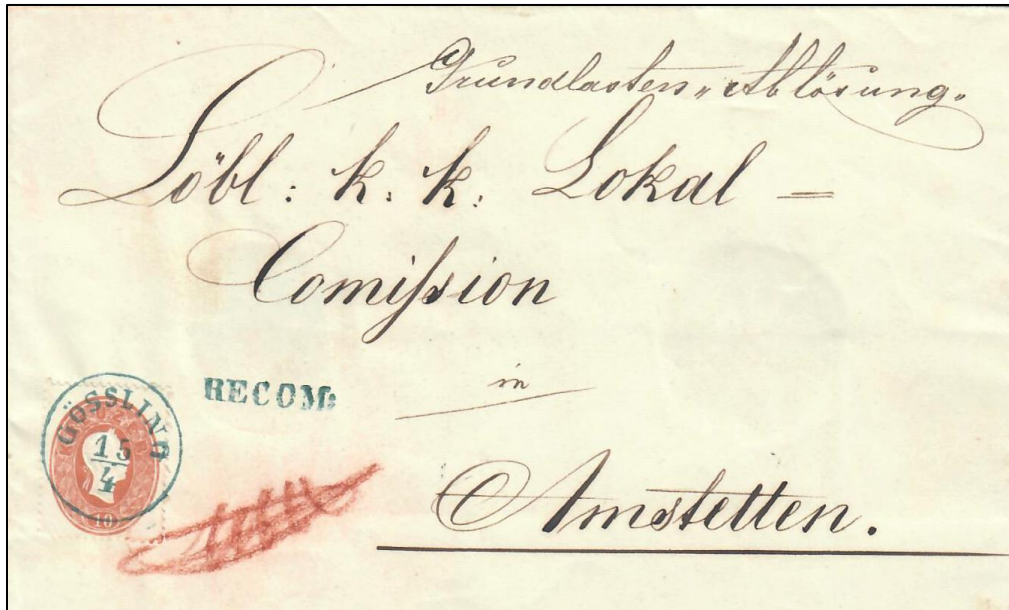 Grundlasten„Ablösung„
Löbl: k. k. Lokal =
Comiſsion
in
Amstetten.
RECOM:
GÖSSLING
15
4
10